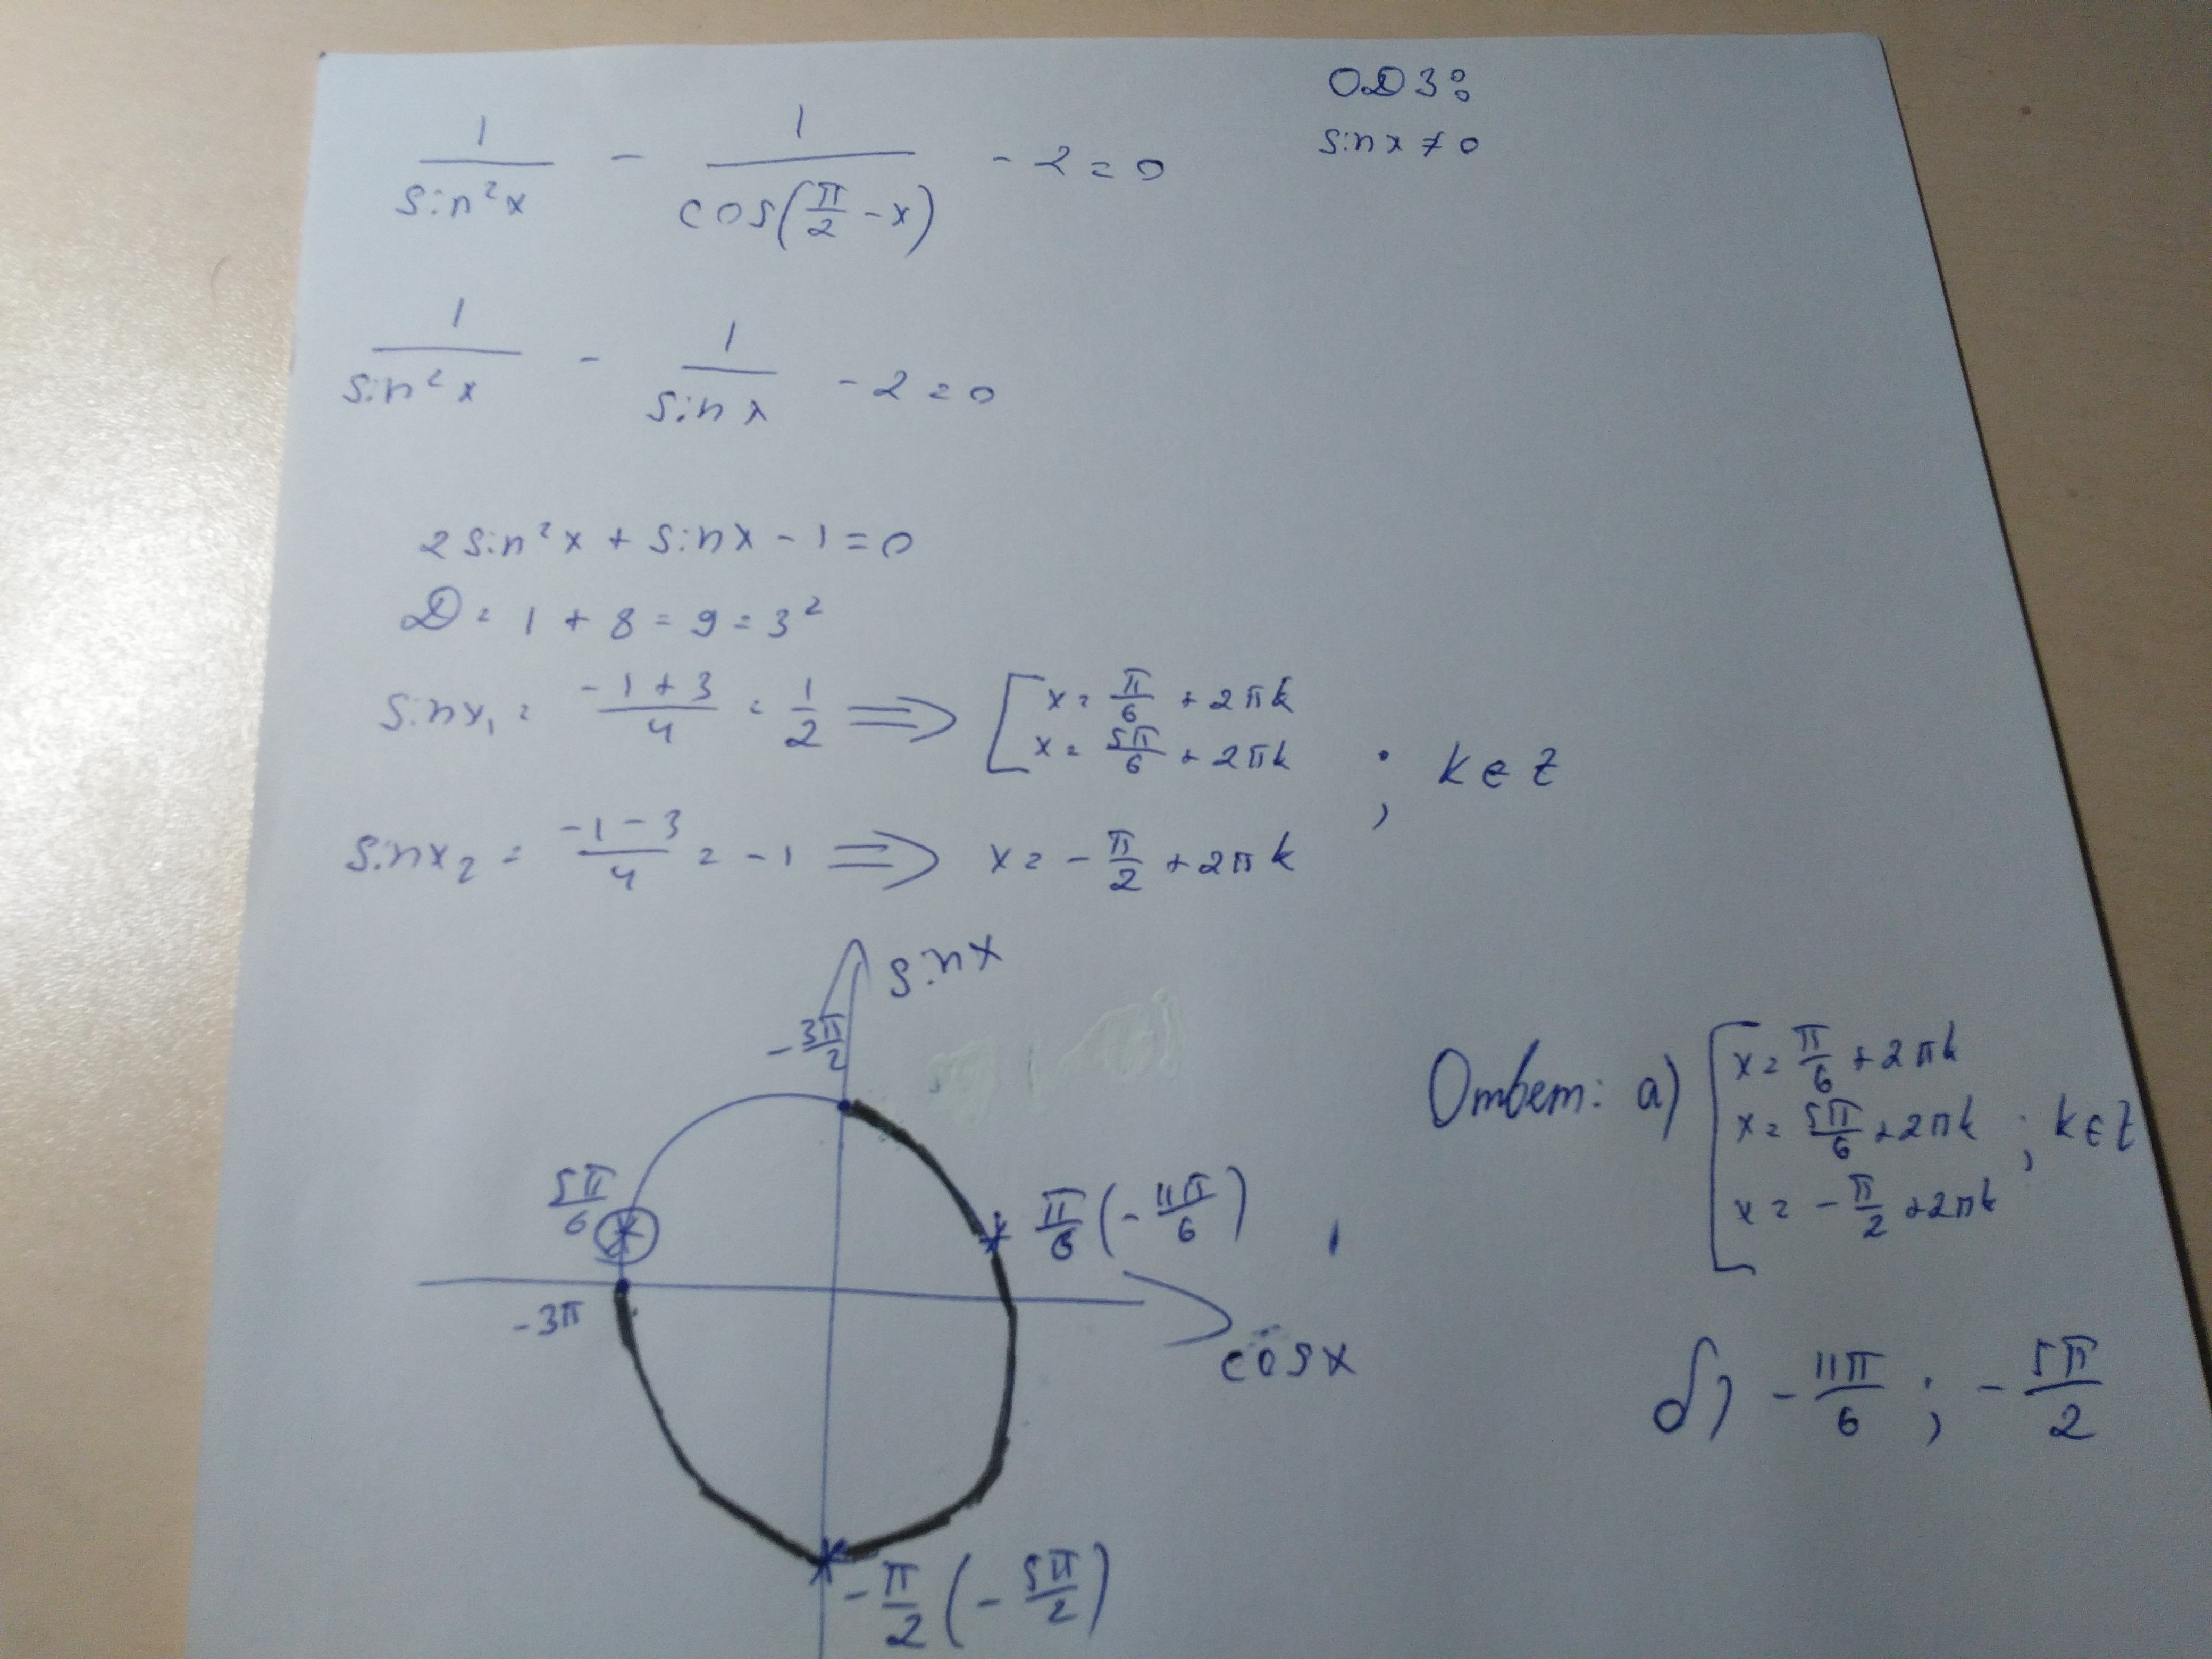 1/sin²x - 1/cos(π/2 - x) - 2 = 0
ОДЗ:
sinx ≠ 0
1/sin²x - 1/sinx - 2 = 0
2sin²x + sinx - 1 = 0
D = 1 + 8 = 9 = 3²
sinx₁ = (-1+3)/4 = 1/2 ⇒ [ x = π/6 + 2πk
x = 5π/6 + 2πk
; k ∈ Z
sinx₂ = (-1-3)/4 = -1 ⇒ x = -π/2 + 2πk
sinx
-3π/2
5π/6
π/6 (-11π/6)
-3π
cosx
-π/2 (-5π/2)
Ответ: а) [ x = π/6 + 2πk
x = 5π/6 + 2πk ; k ∈ Z
x = -π/2 + 2πk
б) -11π/6 ; -5π/2